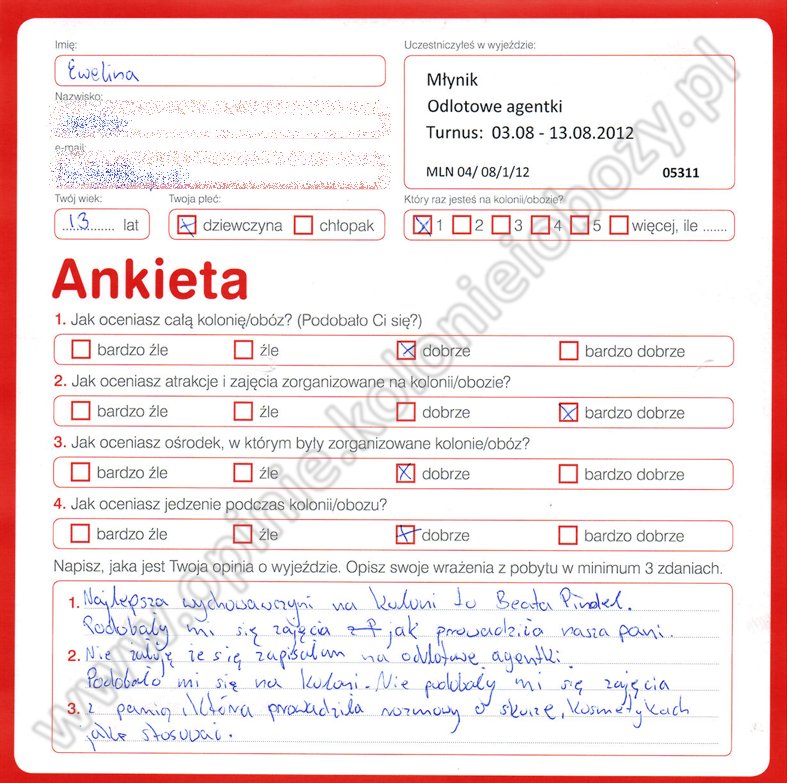 Imię:
Ewelina
Nazwisko:
e-mail:
Twój wiek:
13 lat
Twoja płeć:
dziewczyna chłopak
Uczestniczyłeś w wyjeździe:
Młynik
Odlotowe agentki
Turnus: 03.08 - 13.08.2012
MLN 04/ 08/1/12 05311
Który raz jesteś na kolonii/obozie?
1 2 3 4 5 więcej, ile .......
Ankieta
1. Jak oceniasz całą kolonię/obóz? (Podobało Ci się?)
bardzo źle źle dobrze bardzo dobrze
2. Jak oceniasz atrakcje i zajęcia zorganizowane na kolonii/obozie?
bardzo źle źle dobrze bardzo dobrze
3. Jak oceniasz ośrodek, w którym były zorganizowane kolonie/obóz?
bardzo źle źle dobrze bardzo dobrze
4. Jak oceniasz jedzenie podczas kolonii/obozu?
bardzo źle źle dobrze bardzo dobrze
Napisz, jaka jest Twoja opinia o wyjeździe. Opisz swoje wrażenia z pobytu w minimum 3 zdaniach.
1. Najlepsza wychowawczyni na koloni to Beata Pindel.
Podobały mi się zajęcia jak prowadziła nasza pani.
2. Nie żałuję że się zapisałam na odlotowe agentki.
Podobało mi się na koloni. Nie podobały mi się zajęcia
3. z panią, która prowadziła rozmowy o skórze, kosmetykach
jakie stosować.
www.opinie.kolonieiobozy.pl